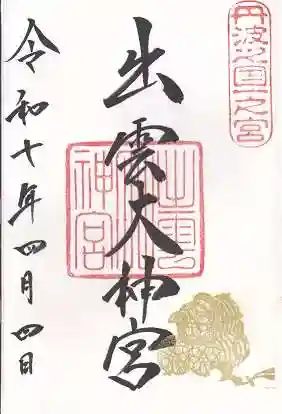 丹波國一之宮
出雲大神宮
出雲大神宮
令和十年四月四日